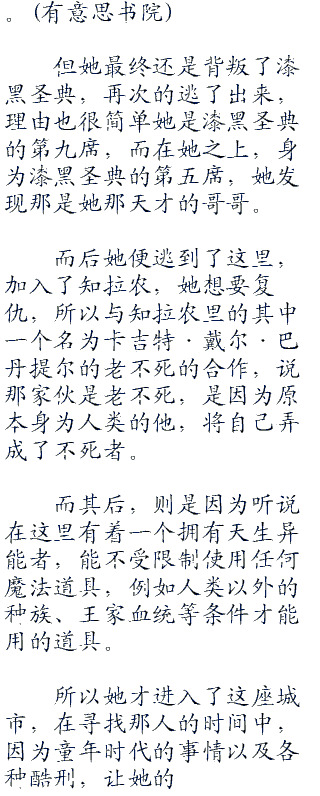 。(有意思书院)
但她最终还是背叛了漆
黑圣典，再次的逃了出来，
理由也很简单她是漆黑圣典
的第九席，而在她之上，身
为漆黑圣典的第五席，她发
现那是她那天才的哥哥。
而后她便逃到了这里，
加入了知拉农，她想要复
仇，所以与知拉农里的其中
一个名为卡吉特·戴尔·巴
丹提尔的老不死的合作，说
那家伙是老不死，是因为原
本身为人类的他，将自己弄
成了不死者。
而其后，则是因为听说
在这里有着一个拥有天生异
能者，能不受限制使用任何
魔法道具，例如人类以外的
种族、王家血统等条件才能
用的道具。
所以她才进入了这座城
市，在寻找那人的时间中，
因为童年时代的事情以及各
种酷刑，让她的